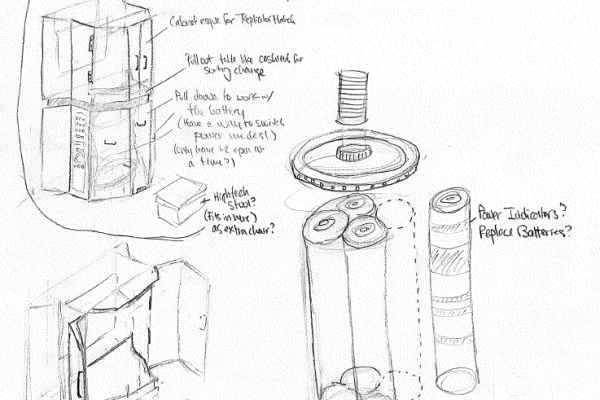 Cabinet esque for Replicator Hatch
Pull out table like cashiers for
sorting change
Pull down to work w/
the battery
(Have a way to switch
power modes!)
(only have 1-2 open at
a time?)
High tech
Stool?
(Fits in here)
as extra chair?
Power Indicators?
Replace Batteries?